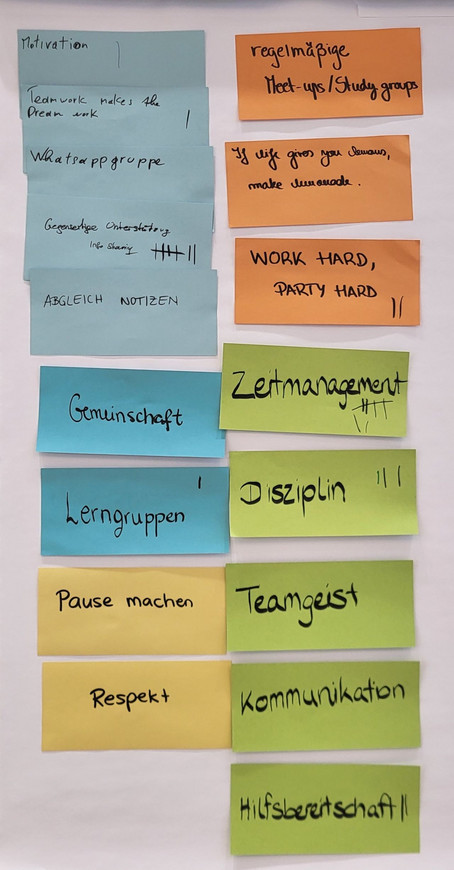 Motivation |
Teamwork makes the
Dream work |
Whatsappgruppe
Gegenseitige Unterstützung
Info Sharing |||| ||
ABGLEICH NOTIZEN
Gemeinschaft
Lerngruppen |
Pause machen
Respekt
regelmäßige
Meet-ups/Study groups
If life gives you lemons,
make lemonade.
WORK HARD,
PARTY HARD ||
Zeitmanagement
|||| ||
Disziplin |||
Teamgeist
Kommunikation
Hilfsbereitschaft ||